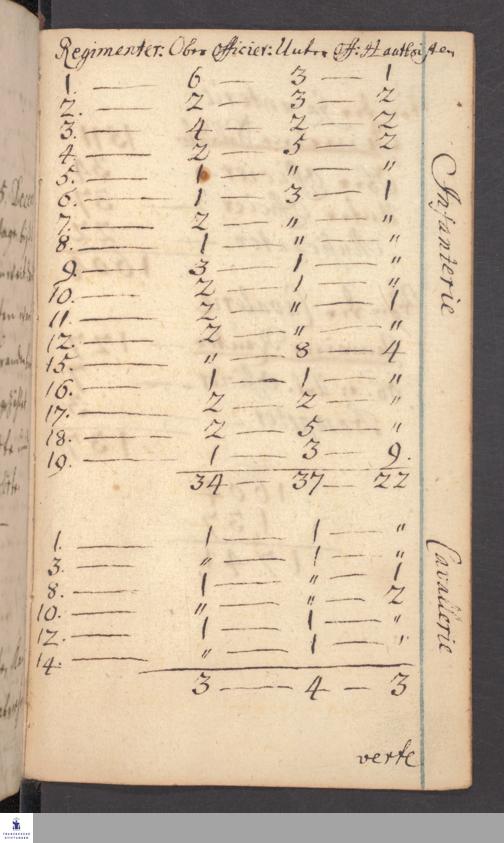 Regimenter: Ober officier: Unter off: Hautboisten
1. — 6 — 3 — 1
2. — 2 — 3 — 2
3. — 4 — 2 — 2
4. — 2 — 5 — 2
5. — 1 — " — "
6. — 1 — 3 — 1
7. — 2 — " — "
8. — 1 — " — "
9. — 3 — 1 — "
10. — 2 — 1 — "
11. — 2 — " — 1
12. — 2 — " — "
15. — " — 8 — 4
16. — 1 — 1 — "
17. — 2 — 2 — "
18. — 2 — 5 — "
19. — 1 — 3 — 9.
34 — 37 — 22
Infanterie
1. — 1 — 1 — "
3. — " — 1 — "
8. — 1 — " — 1
10. — " — " — 2
12. — 1 — 1 — "
14. — " — 1 — "
3 — 4 — 3
Cavallerie
verte
FRANCKESCHE STIFTUNGEN